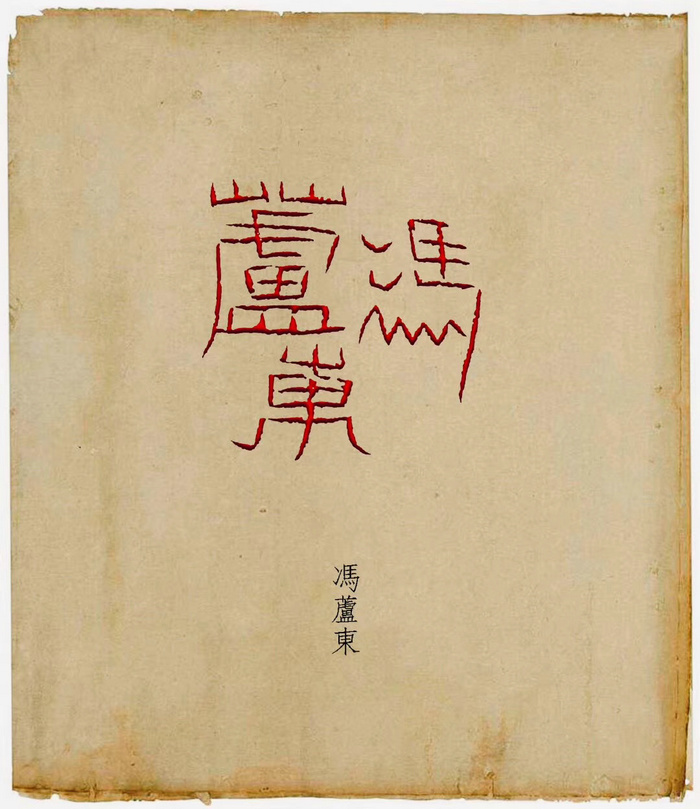 馮
蘆東
馮蘆東